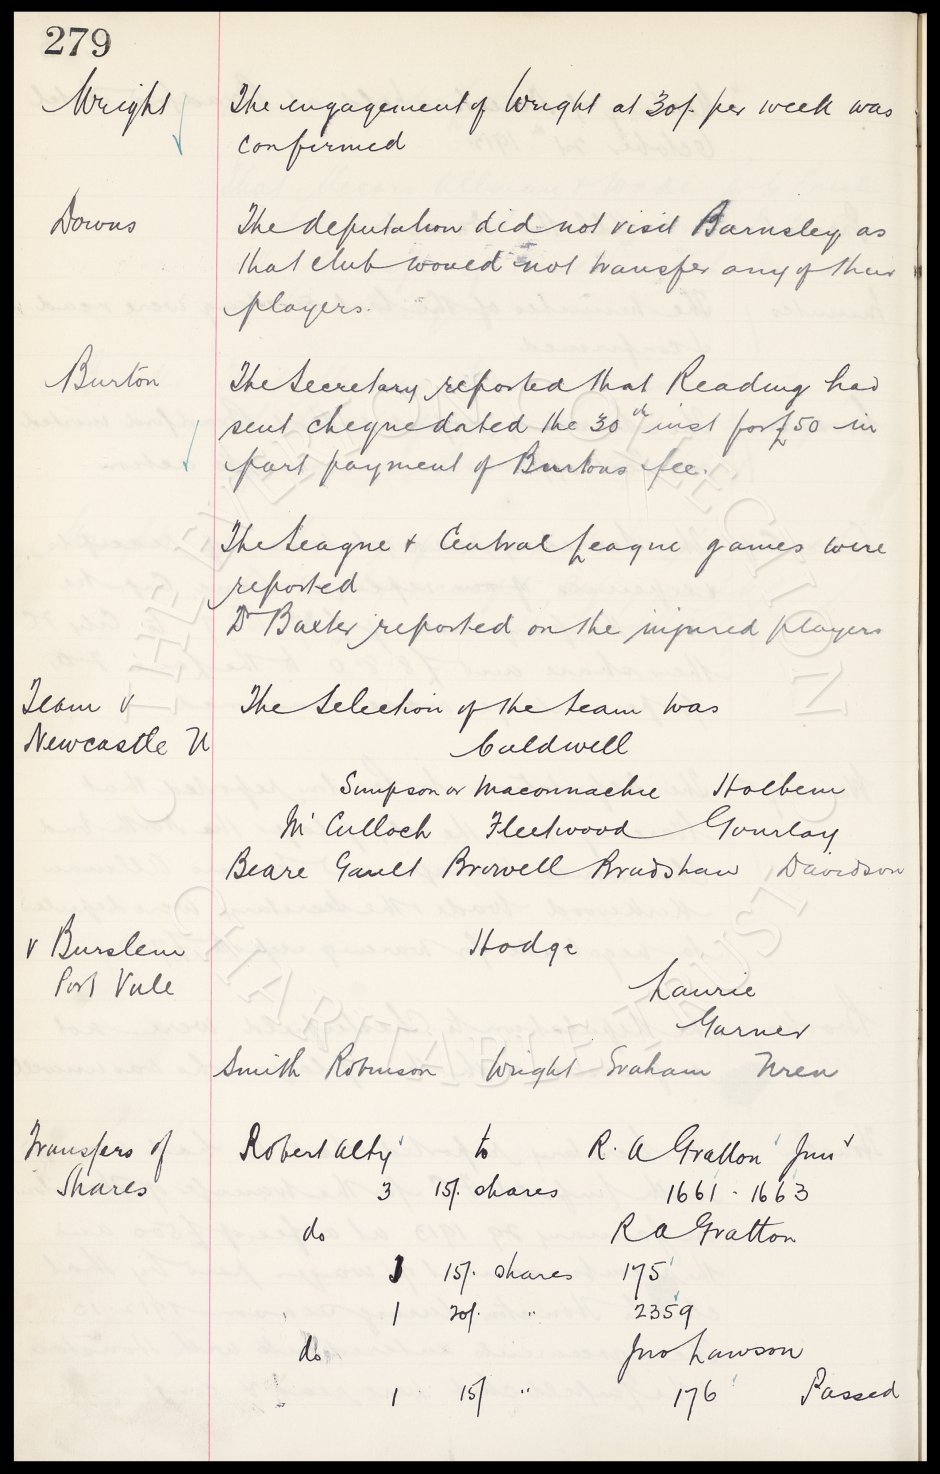 279
Wright The engagement of Wright at 30/- per week was
confirmed
Downs The deputation did not visit Barnsley as
that club would not transfer any of their
players.
Burton The Secretary reported that Reading had
sent cheque dated the 30th inst for £50 in
part payment of Burtons fee.
The League & Central League games were
reported
Dr Baxter reported on the injured players
Team v The Selection of the team was
Newcastle U Caldwell
Simpson or Maconnachie Holbem
McCulloch Fleetwood Gourlay
Beare Gault Browell Bradshaw Davidson
v Burslem Hodge
Port Vale Laurie
Garner
Smith Robinson Wright Graham Wren
Transfers of Robert Alty to R. A Gratton Junr
Shares 3 15/- shares 1661 - 1663
do R A Gratton
1 15/- shares 175
1 20/- " 2359
do Jno Lawson
1 15/ " 176 Passed
THE EVERTON COLLECTION
CHARITABLE TRUST